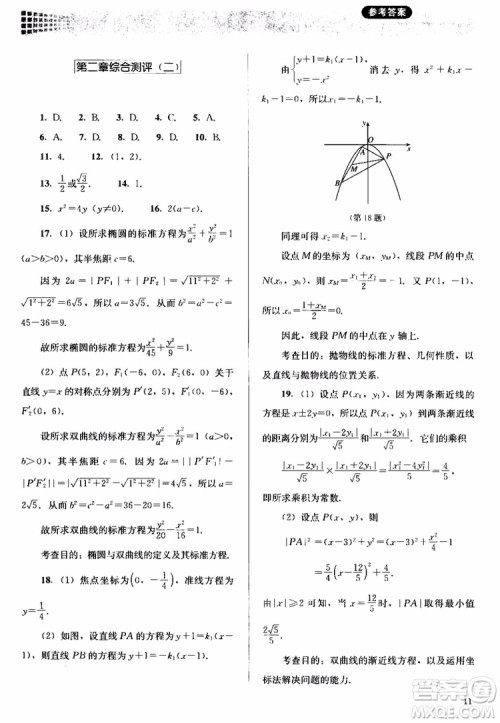 参考答案
第二章综合测评（二）
1. D.　2. D.　3. A.　4. C.　5. D.
6. A.　7. D.　8. D.　9. A.　10. A.
11. 4.　12. (1，2).
13. 1/2或√3/2.　14. 1.
15. x²=4y (y≠0).　16. 2(a−c).
17. （1）设所求椭圆的标准方程为x²/a²+y²/b²=1
(a>b>0)，其半焦距 c=6.
因为 2a=|PF₁|+|PF₂|=√(11²+2²)+
√(1²+2²)=6√5，所以 a=3√5，b²=a²−c²=
45−36=9.
故所求椭圆的标准方程为x²/45+y²/9=1.
（2）点 P(5，2)，F₁(−6，0)，F₂(6，0)关于
直线 y=x 的对称点分别为 P′(2，5)，F₁′(0，−6)，
F₂′(0，6).
设所求双曲线的标准方程为y²/a²−x²/b²=1(a>0，
b>0)，其半焦距 c=6. 因为 2a=||P′F₁′|−
|P′F₂′||=|√(11²+2²)−√(1²+2²)|=4√5，所以
a=2√5，b²=c²−a²=36−20=16.
故所求双曲线的标准方程为y²/20−x²/16=1.
考查目的：椭圆与双曲线的定义及其标准方程.
18. （1）焦点坐标为(0，−1/4)，准线方程为
y=1/4.
（2）如图，设直线 PA 的方程为 y+1=k₁(x−
1)，则直线 PB 的方程为 y+1=−k₁(x−1).
由{y+1=k₁(x−1)，　消去 y，得 x²+k₁x−k₁
−1=0，所以 x₁=−k₁−1.
y
O
x
A
P
M
B
（第 18 题）
同理可得 x₂=k₁−1.
设点 M 的坐标为(x_M，y_M)，则 x_M=(x₁+x₂)/2=−1.
所以 x₀=(1+x_M)/2=0.
因此，线段 PM 的中点在 y 轴上.
考查目的：抛物线的标准方程、几何性质，以
及直线与抛物线的位置关系.
19. （1）设点 P(x₁，y₁). 因为两条渐近线的方
程为 x±2y=0，所以点 P(x₁，y₁)到两条渐近线
的距离分别为|x₁−2y₁|/√5和|x₁+2y₁|/√5，它们的乘积
|x₁−2y₁|/√5×|x₁+2y₁|/√5=|x₁²−4y₁²|/5=4/5.
所以乘积为常数.
（2）设点 P(x，y)，则
|PA|²=(x−3)²+y²=(x−3)²+x²/4−1
=5/4(x−12/5)²+4/5.
因为|x|≥2，所以当 x=12/5 时，|PA|的最小值
为2√5/5.
考查目的：双曲线的渐近线方程、应用代数坐
标法解决问题的能力.
11